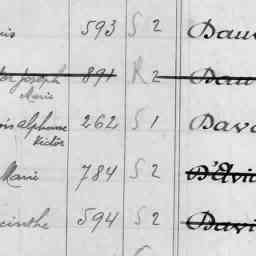 is 593 S 2 Dau
tor Joseph Marie 891 R 2 Dau
is alphonse Victor 262 S 1 Dava
Marie 784 S 2 D'Elvi
cinthe 594 S 2 Davi